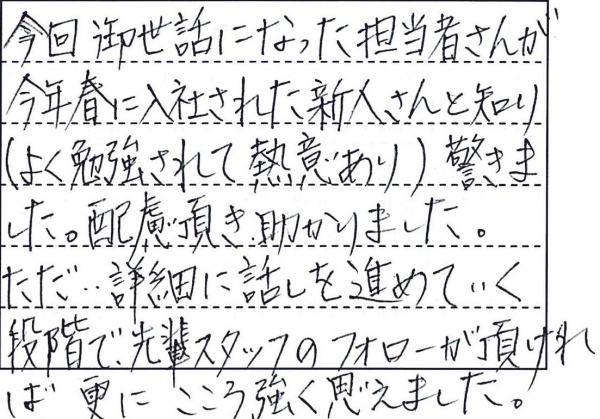 今回御世話になった担当者さんが
今年春に入社された新人さんと知り
(よく勉強されて熱意あり)驚きま
した。配慮頂き助かりました。
ただ‥詳細に話しを進めていく
段階で、先輩スタッフのフォローが頂けれ
ば更にこころ強く思えました。